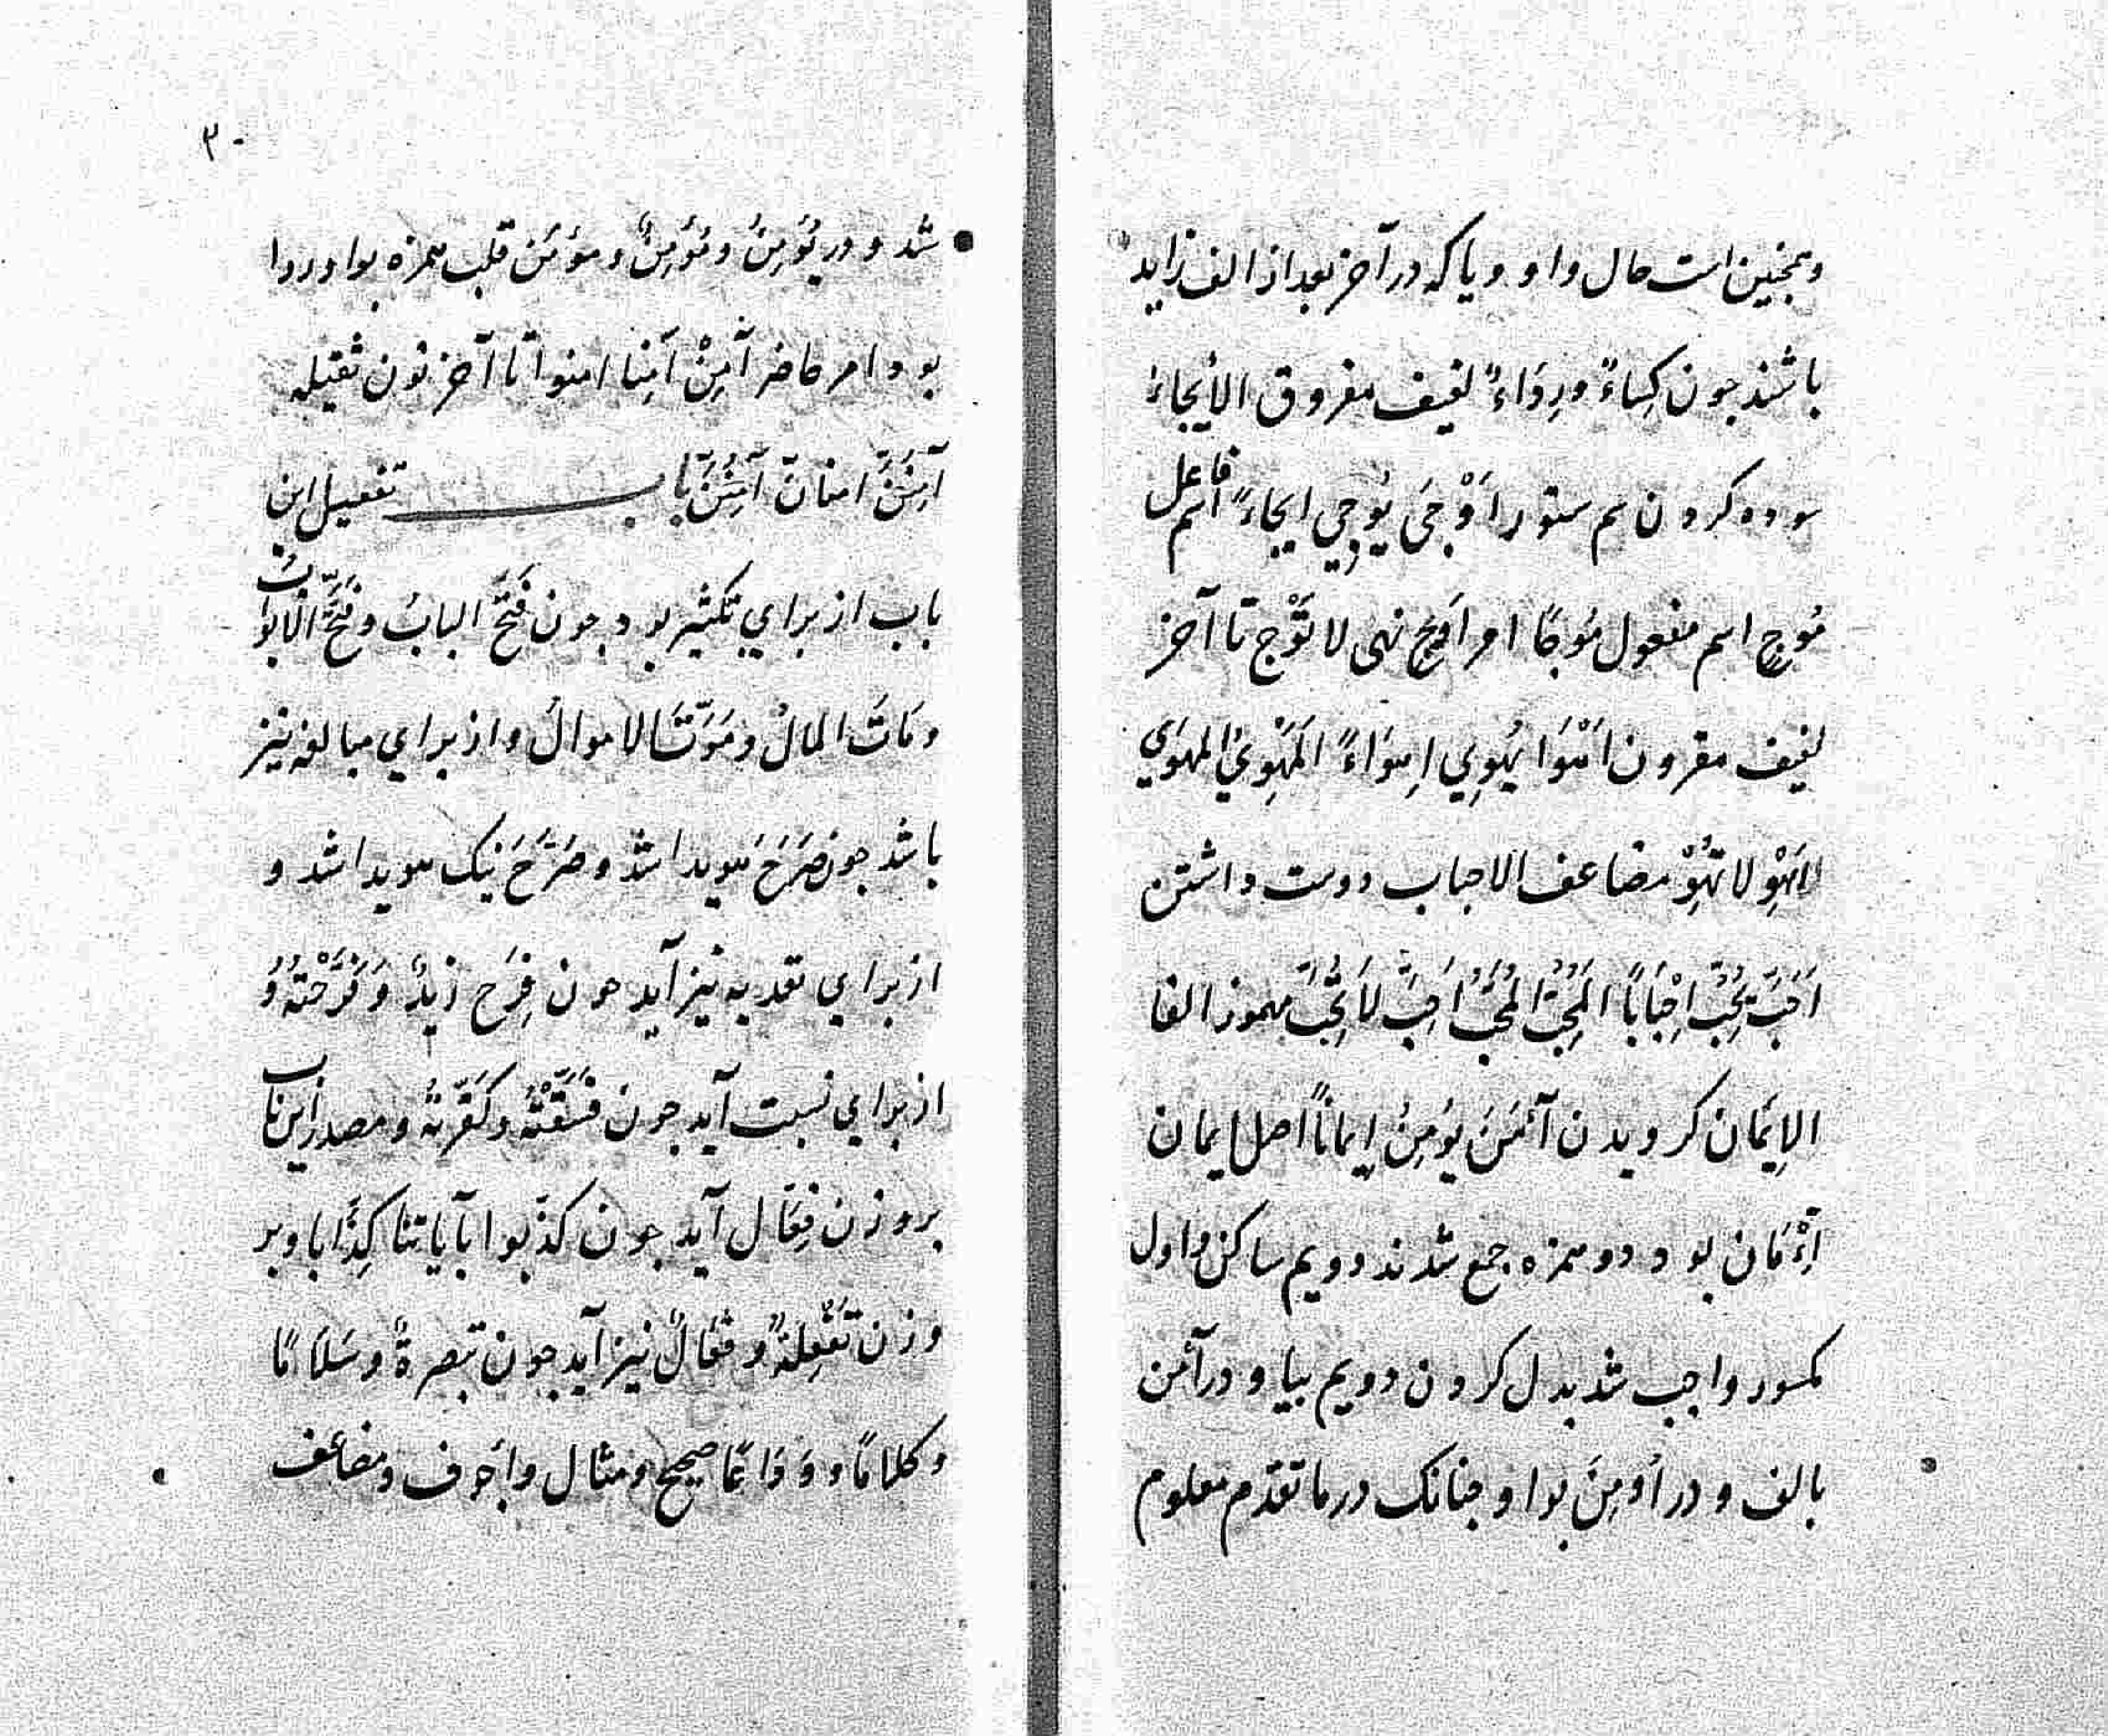 وهمچنین است حال واو و یا که در آخر بعد از الف زاید
باشند چون کِسَاءٌ ورِدَاءٌ لفیف مفروق الایجاءُ
سوده کردن سم ستور اَوْجَی یُوجِي ایجاءً اسم فاعل
مُوجٍ اسم مفعول مُوجًا امر اَوْجِ نهی لا تُوْجِ تا آخر
لفیف مقرون اَهْوَا یُهْوِي اِهْوَاءً المُهْوِيْ المهوَي
اَهْوِ لا تُهْوِ مضاعف الاحباب دوست داشتن
اَحَبَّ یُحِبُّ اِحْبَابًا المُحِبُّ المُحَبُّ اَحِبَّ لاَتُحِبَّ مهموز الفا
الاِیمَان کرویدن آئمَنَ یُوْمِنُ اِیمانًا اصل ایمان
اِئْمَان بود دو همزه جمع شدند دویم ساکن و اول
مکسور واجب شد بدل کردن دویم بیا و در آئمن
بالف و در اُومِنَ بواو چنانک در ما تقدّم معلوم
۳۰
شد و در یُوْمِنُ ومُؤْمِنٌ و مؤمَن قلب همزه بواو روا
بود امر حاضر آمِنْ آمِنا امنوا تا آخر نون ثقیله
آمِنَنَّ امنانّ آمِنُنَّ باب تفعیل این
باب از برای تکثیر بود چون فَتَحَ البابُ وفَتَّحَ الابوابُ
ومَاتَ المالُ ومَوَّتَ الاموالُ و از برای مبالغه نیز
باشد چون صَرَحَ هویدا شد و صَرَّحَ نیک هویدا شد و
از برای تعدیه نیز آید چون فَرِحَ زیدٌ وَفَرَّحْتُهُ وَ
از برای نسبت آید چون فَسَّقْتُهُ وکَفَّرتُهُ و مصدر این باب
بر وزن فِعَّال آید چون کذّبوا بآیاتنا کِذَّابا و بر
وزن تَفْعِلَةٌ و فَعَالٌ نیز آید چون تبصرةٌ وسَلاَمًا
وکلامًا و وَدَاعًا صحیح و مثال و اجوف و مضاعف